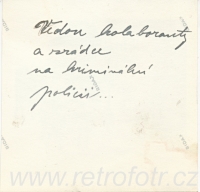 Vedou kolaboranty
a zrádce
na kriminální
policii...
www.retrofotr.cz